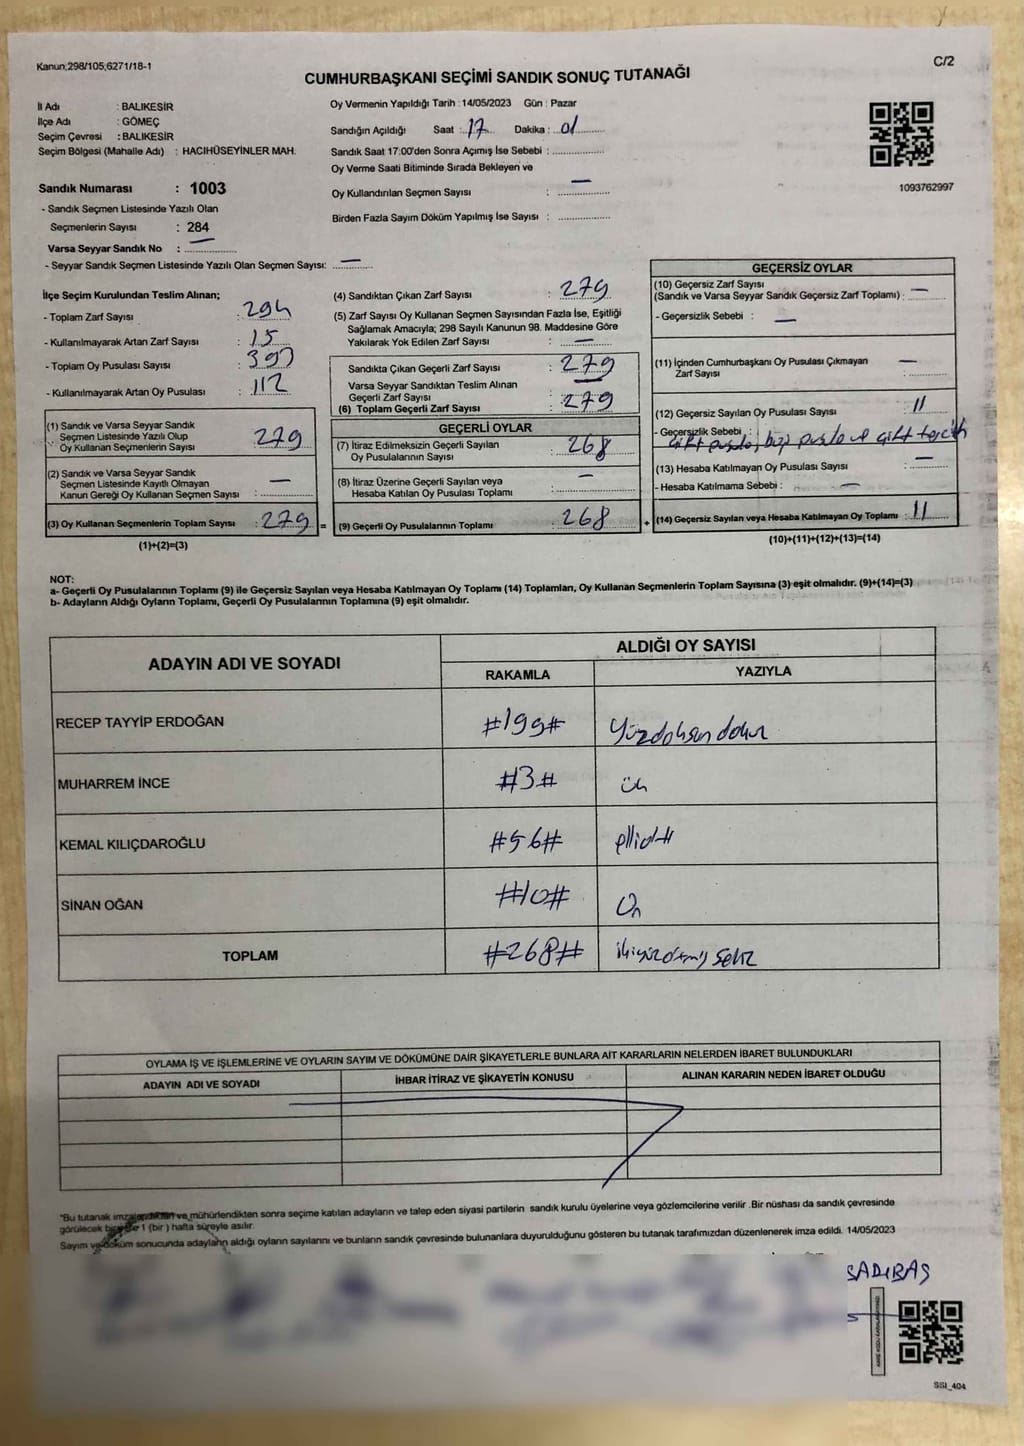 Kanun;298/105;6271/18-1
C/2
CUMHURBAŞKANI SEÇİMİ SANDIK SONUÇ TUTANAĞI
İl Adı : BALIKESİR
İlçe Adı : GÖMEÇ
Seçim Çevresi : BALIKESİR
Seçim Bölgesi (Mahalle Adı) : HACIHÜSEYİNLER MAH.
Sandık Numarası : 1003
- Sandık Seçmen Listesinde Yazılı Olan
Seçmenlerin Sayısı : 284
Varsa Seyyar Sandık No : —
- Seyyar Sandık Seçmen Listesinde Yazılı Olan Seçmen Sayısı: —
Oy Vermenin Yapıldığı Tarih : 14/05/2023 Gün : Pazar
Sandığın Açıldığı Saat : 17 Dakika : 01
Sandık Saat 17:00'den Sonra Açımış İse Sebebi :
Oy Verme Saati Bitiminde Sırada Bekleyen ve
Oy Kullandırılan Seçmen Sayısı : —
Birden Fazla Sayım Döküm Yapılmış İse Sayısı :
1093762997
İlçe Seçim Kurulundan Teslim Alınan;
- Toplam Zarf Sayısı : 294
- Kullanılmayarak Artan Zarf Sayısı : 15
- Toplam Oy Pusulası Sayısı :
- Kullanılmayarak Artan Oy Pusulası : 112
(1) Sandık ve Varsa Seyyar Sandık
Seçmen Listesinde Yazılı Olup
Oy Kullanan Seçmenlerin Sayısı : 279
(2) Sandık ve Varsa Seyyar Sandık
Seçmen Listesinde Kayıtlı Olmayan
Kanun Gereği Oy Kullanan Seçmen Sayısı : —
(3) Oy Kullanan Seçmenlerin Toplam Sayısı : 279 =
(1)+(2)=(3)
(4) Sandıktan Çıkan Zarf Sayısı : 279
(5) Zarf Sayısı Oy Kullanan Seçmen Sayısından Fazla İse, Eşitliği
Sağlamak Amacıyla; 298 Sayılı Kanunun 98. Maddesine Göre
Yakılarak Yok Edilen Zarf Sayısı : —
Sandıkta Çıkan Geçerli Zarf Sayısı : 279
Varsa Seyyar Sandıktan Teslim Alınan
Geçerli Zarf Sayısı : —
(6) Toplam Geçerli Zarf Sayısı : 279
GEÇERLİ OYLAR
(7) İtiraz Edilmeksizin Geçerli Sayılan
Oy Pusulalarının Sayısı : 268
(8) İtiraz Üzerine Geçerli Sayılan veya
Hesaba Katılan Oy Pusulası Toplamı : —
(9) Geçerli Oy Pusulalarının Toplamı : 268 +
GEÇERSİZ OYLAR
(10) Geçersiz Zarf Sayısı
(Sandık ve Varsa Seyyar Sandık Geçersiz Zarf Toplamı) : —
- Geçersizlik Sebebi : —
(11) İçinden Cumhurbaşkanı Oy Pusulası Çıkmayan
Zarf Sayısı : —
(12) Geçersiz Sayılan Oy Pusulası Sayısı : 11
- Geçersizlik Sebebi : çift pusula, boş pusula ve çift tercih
(13) Hesaba Katılmayan Oy Pusulası Sayısı : —
- Hesaba Katılmama Sebebi : —
(14) Geçersiz Sayılan veya Hesaba Katılmayan Oy Toplamı : 11
(10)+(11)+(12)+(13)=(14)
NOT:
a- Geçerli Oy Pusulalarının Toplamı (9) ile Geçersiz Sayılan veya Hesaba Katılmayan Oy Toplamı (14) Toplamları, Oy Kullanan Seçmenlerin Toplam Sayısına (3) eşit olmalıdır. (9)+(14)=(3)
b- Adayların Aldığı Oyların Toplamı, Geçerli Oy Pusulalarının Toplamına (9) eşit olmalıdır.
ADAYIN ADI VE SOYADI
ALDIĞI OY SAYISI
RAKAMLA YAZIYLA
RECEP TAYYİP ERDOĞAN #199# Yüzdoksan dokuz
MUHARREM İNCE #3# üç
KEMAL KILIÇDAROĞLU #56# ellialtı
SİNAN OĞAN #10# On
TOPLAM #268# ikiyüzatmış sekiz
OYLAMA İŞ VE İŞLEMLERİNE VE OYLARIN SAYIM VE DÖKÜMÜNE DAİR ŞİKAYETLERLE BUNLARA AİT KARARLARIN NELERDEN İBARET BULUNDUKLARI
ADAYIN ADI VE SOYADI İHBAR İTİRAZ VE ŞİKAYETİN KONUSU ALINAN KARARIN NEDEN İBARET OLDUĞU
"Bu tutanak imzalandıktan ve mühürlendikten sonra seçime katılan adayların ve talep eden siyasi partilerin sandık kurulu üyelerine veya gözlemcilerine verilir .Bir nüshası da sandık çevresinde
görülecek bir yere 1 (bir ) hafta süreyle asılır.
Sayım ve döküm sonucunda adayların aldığı oyların sayılarını ve bunların sandık çevresinde bulunanlara duyurulduğunu gösteren bu tutanak tarafımızdan düzenlenerek imza edildi. 14/05/2023
SADIBAŞ
SSI_404